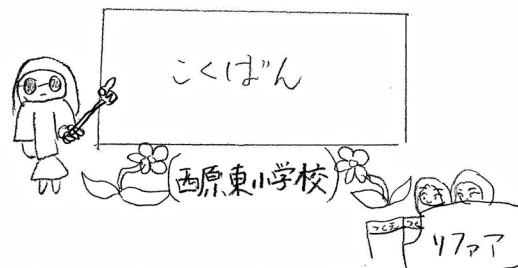 こくばん
(西原東小学校)
つくえ つく
リファア